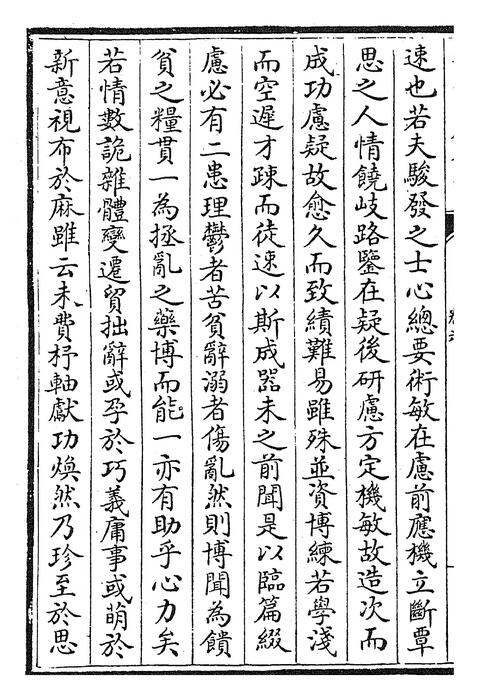 速也若夫駿發之士心總要術敏在慮前應機立斷覃
思之人情饒岐路鑒在疑後研慮方定機敏故造次而
成功慮疑故愈久而致績難易雖殊並資博練若學淺
而空遲才疎而徒速以斯成器未之前聞是以臨篇綴
慮必有二患理鬱者苦貧辭溺者傷亂然則博聞為饋
貧之糧貫一為拯亂之藥博而能一亦有助乎心力矣
若情數詭雜體變遷貿拙辭或孕於巧義庸事或萌於
新意視布於麻雖云未費杼軸獻功煥然乃珍至於思